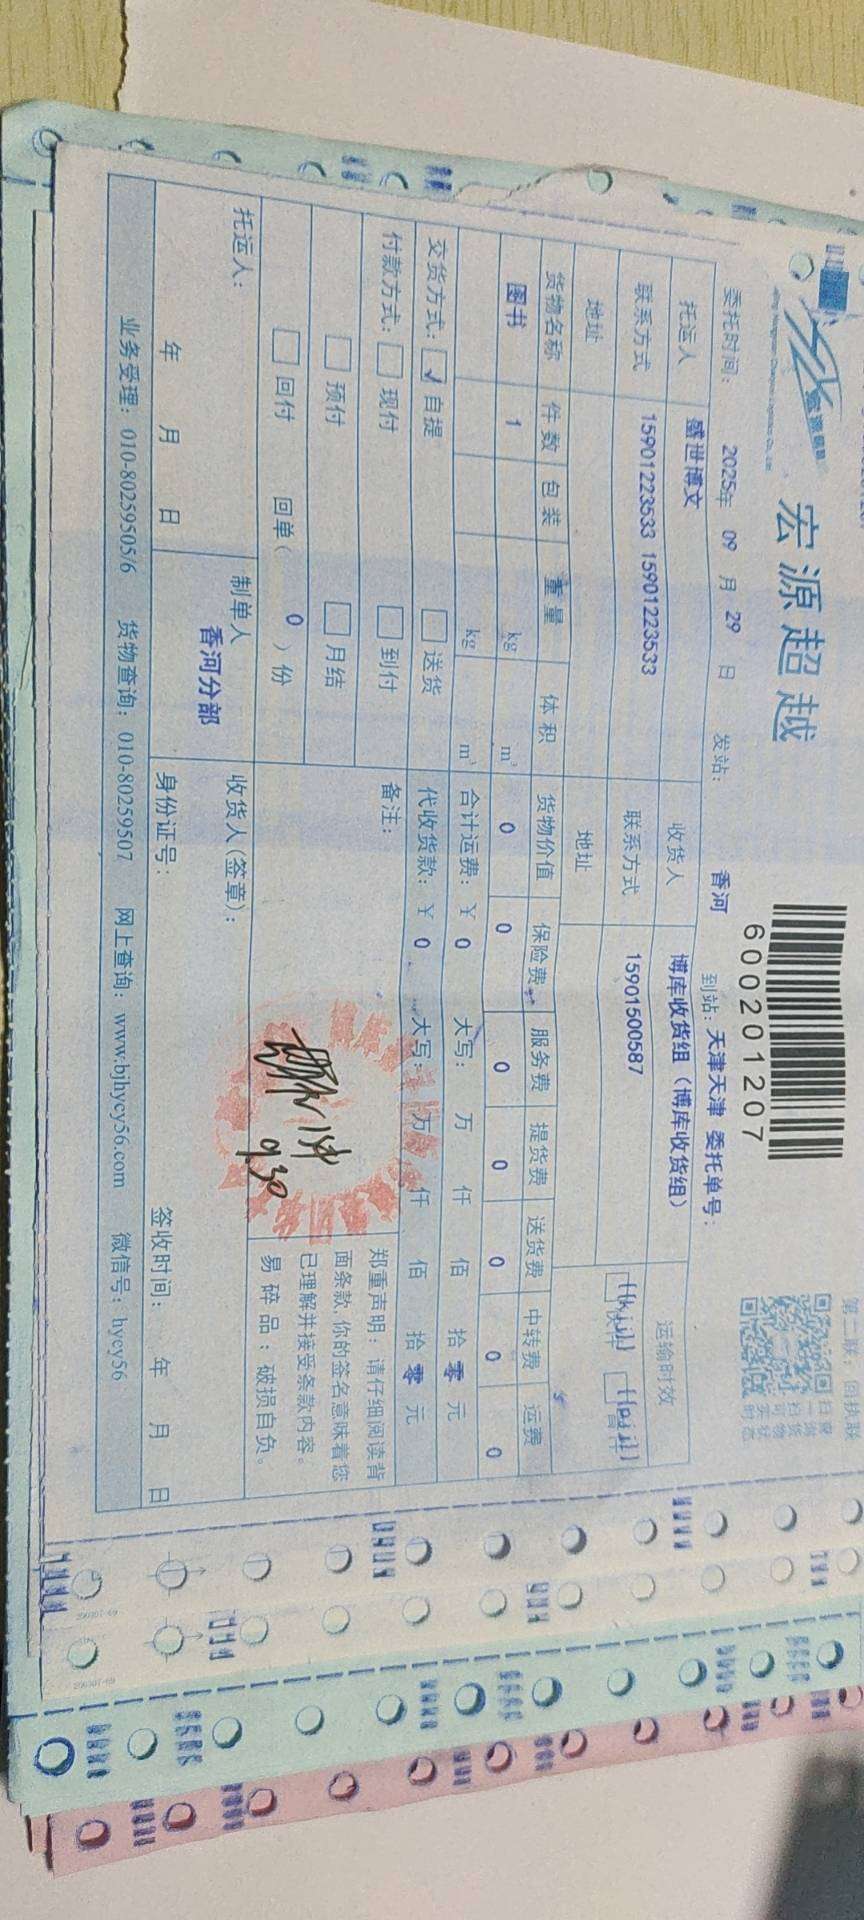 宏源超越
600201207
第二联：回执联
委托时间： 2025年 09 月 29 日 发站： 香河 到站：天津天津 委托单号：
托运人 盛世博文 收货人 博库收货组（博库收货组） 运输时效
联系方式 15901223533 15901223533 联系方式 15901500587
地址 地址
货物名称 件数 包装 重量 体积 货物价值 保险费 服务费 提货费 送货费 中转费 运费
图书 1 kg m³ 0 0 0 0 0 0 0
kg m³ 合计运费：￥ 0 大写： 万 仟 佰 拾 零 元
交货方式： ✓ 自提 送货 代收货款：￥ 0 大写： 万 仟 佰 拾 零 元
付款方式： 现付 到付 备注：
预付 月结
回付 回单（ 0 ）份
郑重声明：请仔细阅读背
面条款，你的签名意味着您
已理解并接受条款内容。
易碎品：破损自负。
9.30
托运人： 制单人 收货人(签章)：
香河分部
年 月 日 身份证号： 签收时间： 年 月 日
业务受理：010-80259505/6 货物查询：010-80259507 网上查询：www.bjhycy56.com 微信号：hycy56